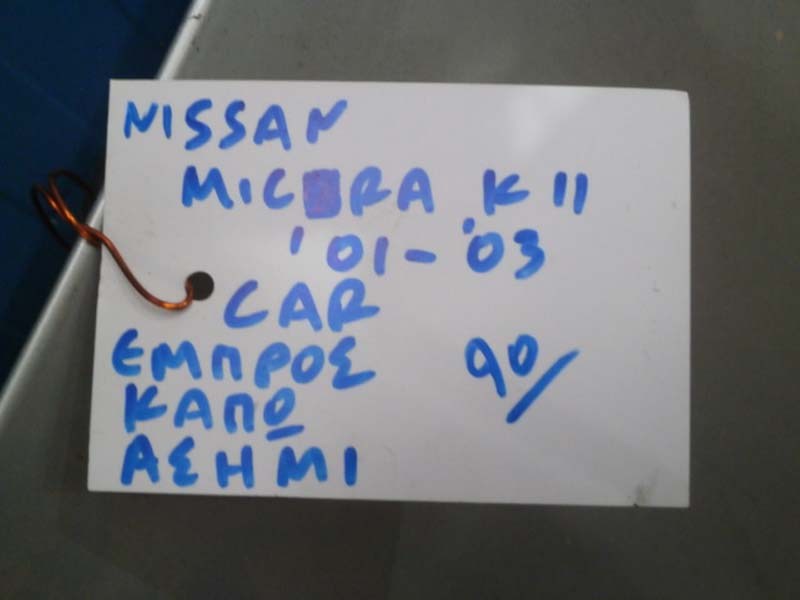 NISSAN
MICRA K11
'01-'03
CAR
ΕΜΠΡΟΣ 90/
ΚΑΠΩ
ΑΣΗΜΙ